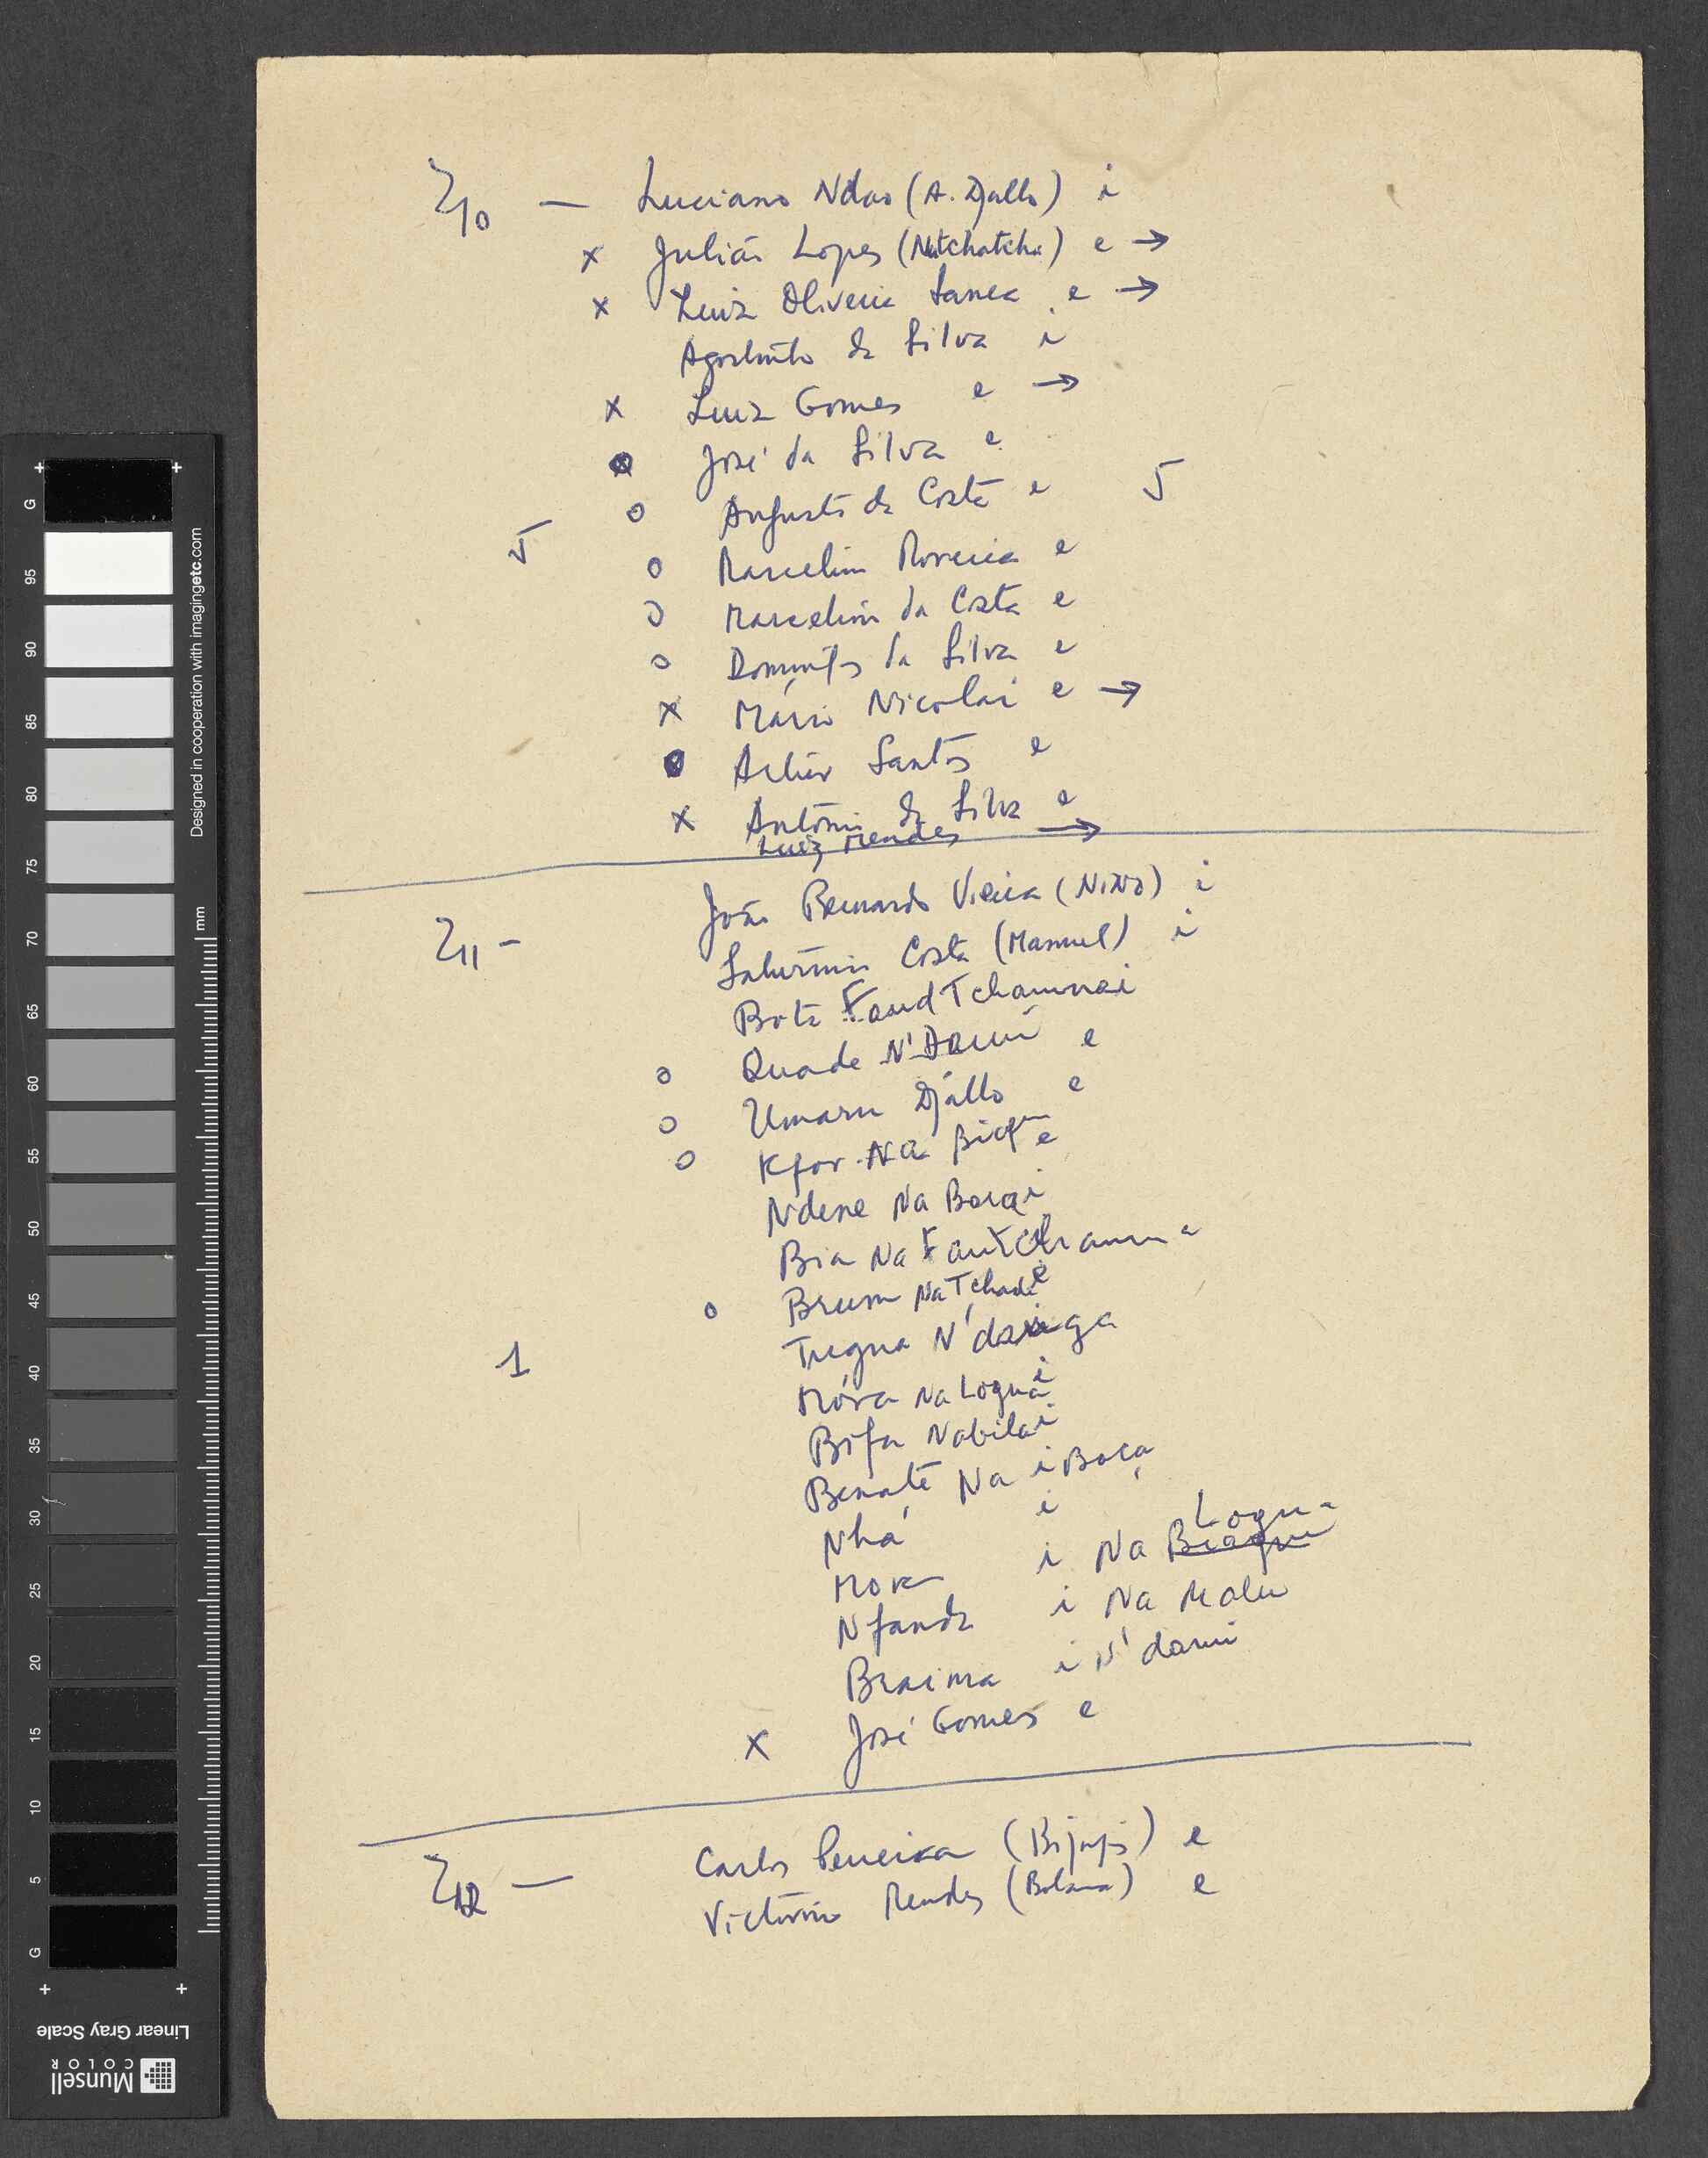 Z10 — Luciano Ndao (A. Djallo) i
x Julião Lopes (Natchatcha) e →
x Luiz Oliveira Sanca e →
Agostinho da Silva i
x Luiz Gomes e →
José da Silva e
o Augusto da Costa e 5
5
o Marcelino Moreira e
o Marcelino da Costa e
o Domingos da Silva e
x Mário Nicolai e →
Artur Santos e
x António da Silva e
Luiz Mendes →
Z11 - João Bernardo Vieira (NINO) i
Saturnino Costa (Manuel) i
Bota
o Quade N'Dami e
o Umaru Djallo e
o Kfor Na e
Ndene Na i
Bia Na
o Brum Na Tchade e
Tregna
1
Móra Na Logna i
Bifa Nabila i
Benate Na i Boca
Nhá i
Mora i Na Biaque Logna
Nfanda i Na Malu
Braima i N'dami
x José Gomes e
Z12 — Carlos Pereira (Bijagós) e
Victorino Mendes (Bolama) e
G
95
90
85
80
75
70
65
60
55
50
45
40
35
30
25
20
15
10
5
G
mm
Designed in cooperation with imagingetc.com
Linear Gray Scale
Munsell
COLOR